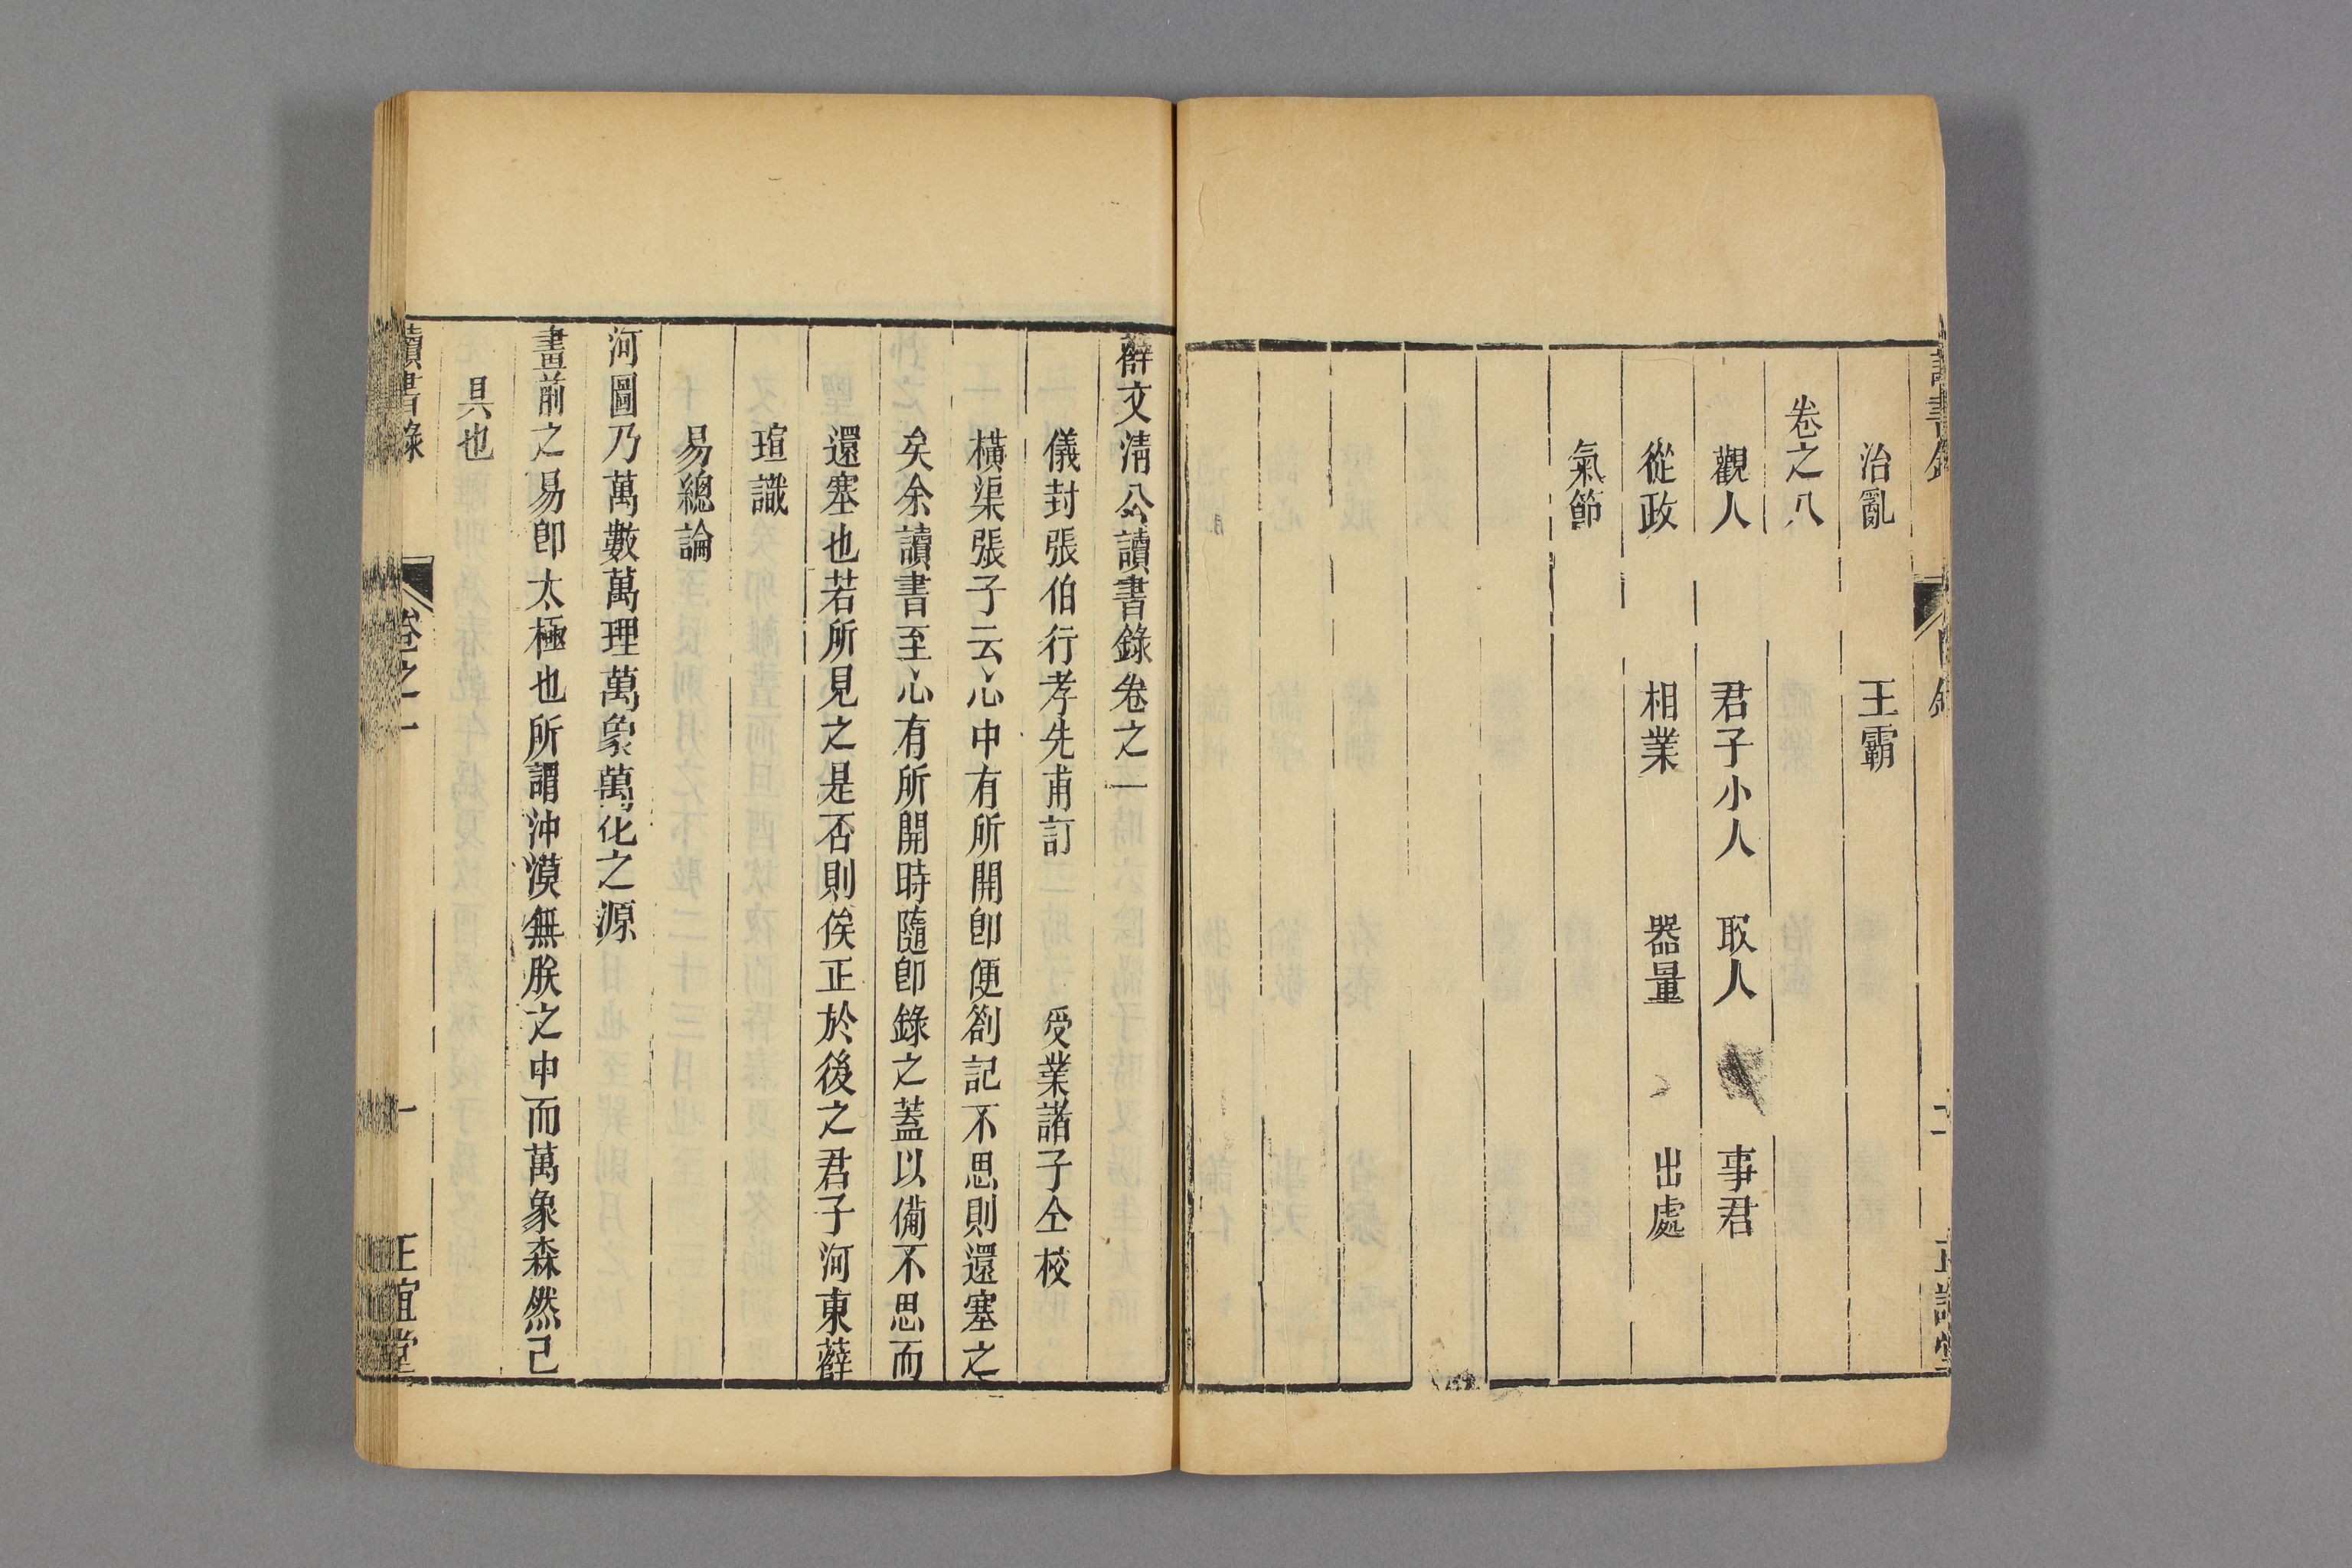 治亂 王霸
卷之八
觀人 君子小人 取人 事君
從政 相業 器量 出處
氣節
薛文清公讀書錄卷之一
儀封張伯行孝先甫訂 受業諸子仝校
橫渠張子云心中有所開卽便劄記不思則還塞之
矣余讀書至心有所開時隨卽錄之蓋以備不思而
還塞也若所見之是否則俟正於後之君子河東薛
瑄識
易總論
河圖乃萬數萬理萬象萬化之源
畫前之易卽太極也所謂沖漠無朕之中而萬象森然已
具也
讀書錄 卷之一 一 正誼堂